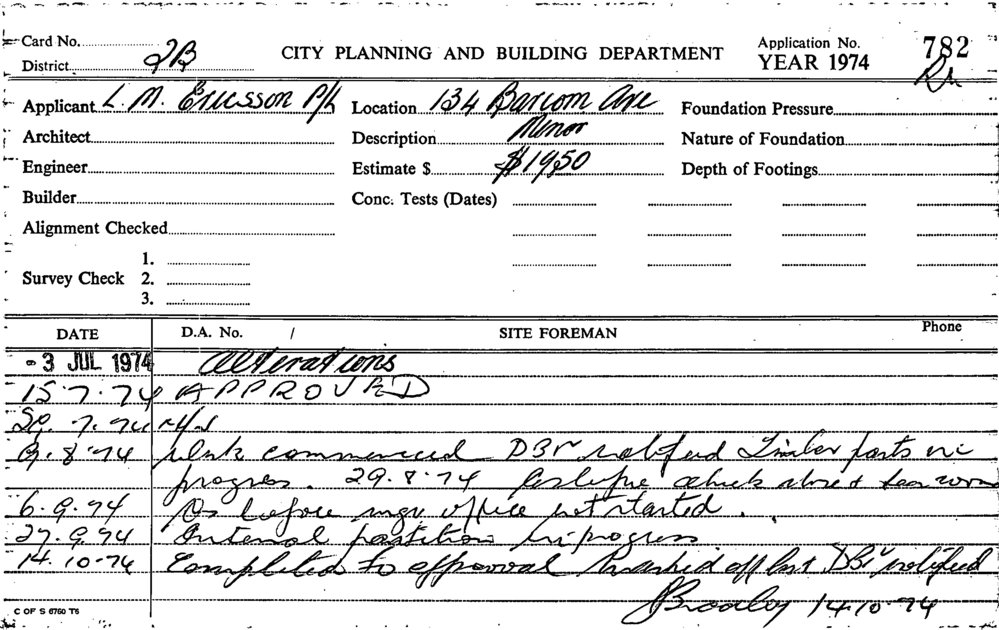 Card No.
District 2B
CITY PLANNING AND BUILDING DEPARTMENT
Application No. 782
YEAR 1974
Applicant L. M. Ericsson P/L
Location 134 Barcom Ave
Foundation Pressure
Architect
Description Minor
Nature of Foundation
Engineer
Estimate $ $1950
Depth of Footings
Builder
Conc. Tests (Dates)
Alignment Checked
Survey Check
1.
2.
3.
DATE D.A. No. / SITE FOREMAN Phone
3 JUL 1974 Alterations
15.7.74 APPROVED
7.74 N/S
9.8.74 Work commenced DBS notified Timber parts in
progress. 29.8.74
6.9.74 As before office not started.
27.9.74 Internal partition in progress
14.10.74 Completed to approval off DBS notified
14.10.74
C OF S 6760 T6